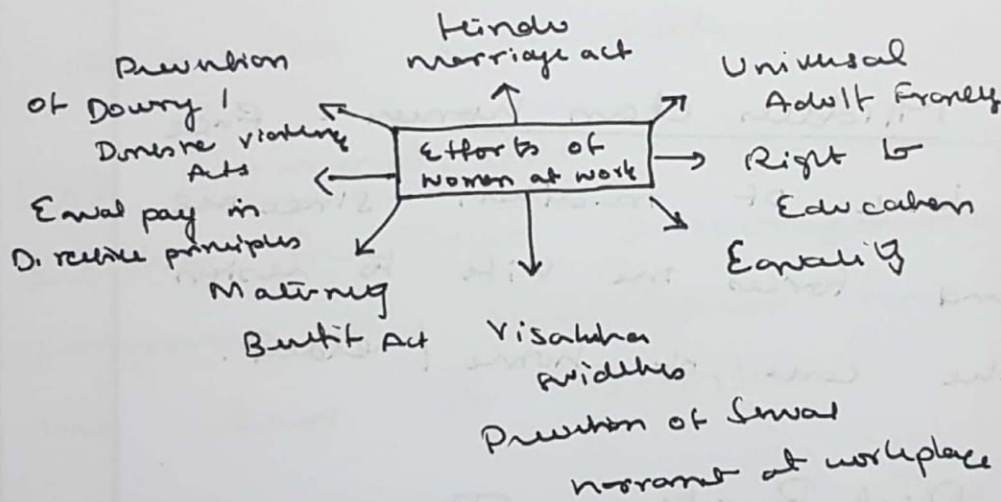 Hindu
marriage act
Prevention
of Dowry /
Domestic violence
Acts
Equal pay in
Directive principles
Maternity
Benefit Act
Efforts of
women at work
Universal
Adult Franch
Right to
Education
Equality
Visakha
guidelines
Prevention of Sexual
harrasment at workplace